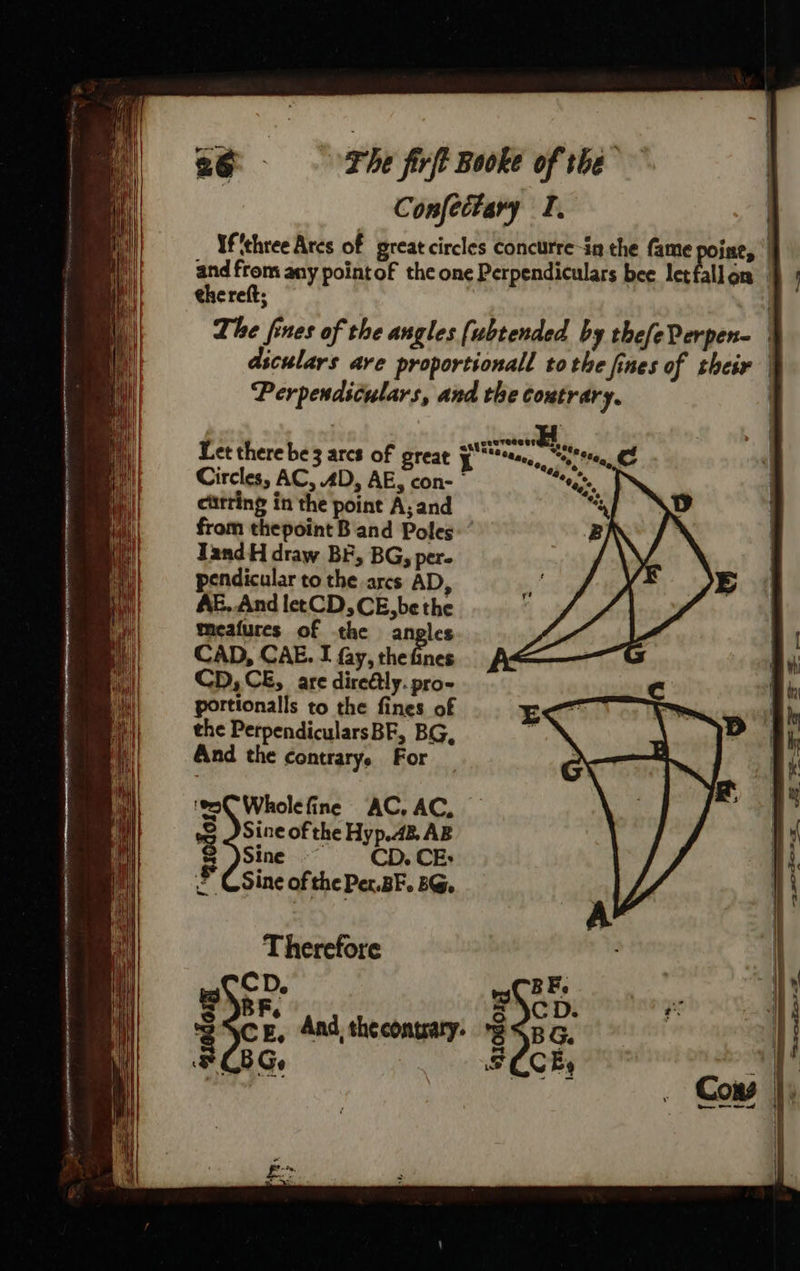 26 The first Booke of the
Consectary I.
If three Arcs of great circles concurre in the same point,
and from any point of the one Perpendiculars bee let fall on
the rest;
The sines of the angles subtended by these Perpen-
diculars are proportionall to the sines of their
Perpendiculars, and the contrary.
Let there be 3 arcs of great
Circles, AC, AD, AE, con-
curring in the point A; and
from the point B and Poles
I and H draw BF, BG, per-
pendicular to the arcs AD,
AE. And let CD, CE, be the
measures of the angles
CAD, CAE. I say, the sines
CD, CE, are directly pro-
portionalls to the sines of
the Perpendiculars BF, BG,
And the contrary. For
H
I
C
D
B
F
E
A
G
C
E
D
B
G
F
A
Whole sine AC, AC,
Sine of the Hyp. AB, AB
Sine CD. CE.
Sine of the Per. BF. BG.
Therefore
CD.
BF.
CE, And, the contrary.
BG.
BF.
CD.
BG.
CE,
Cons